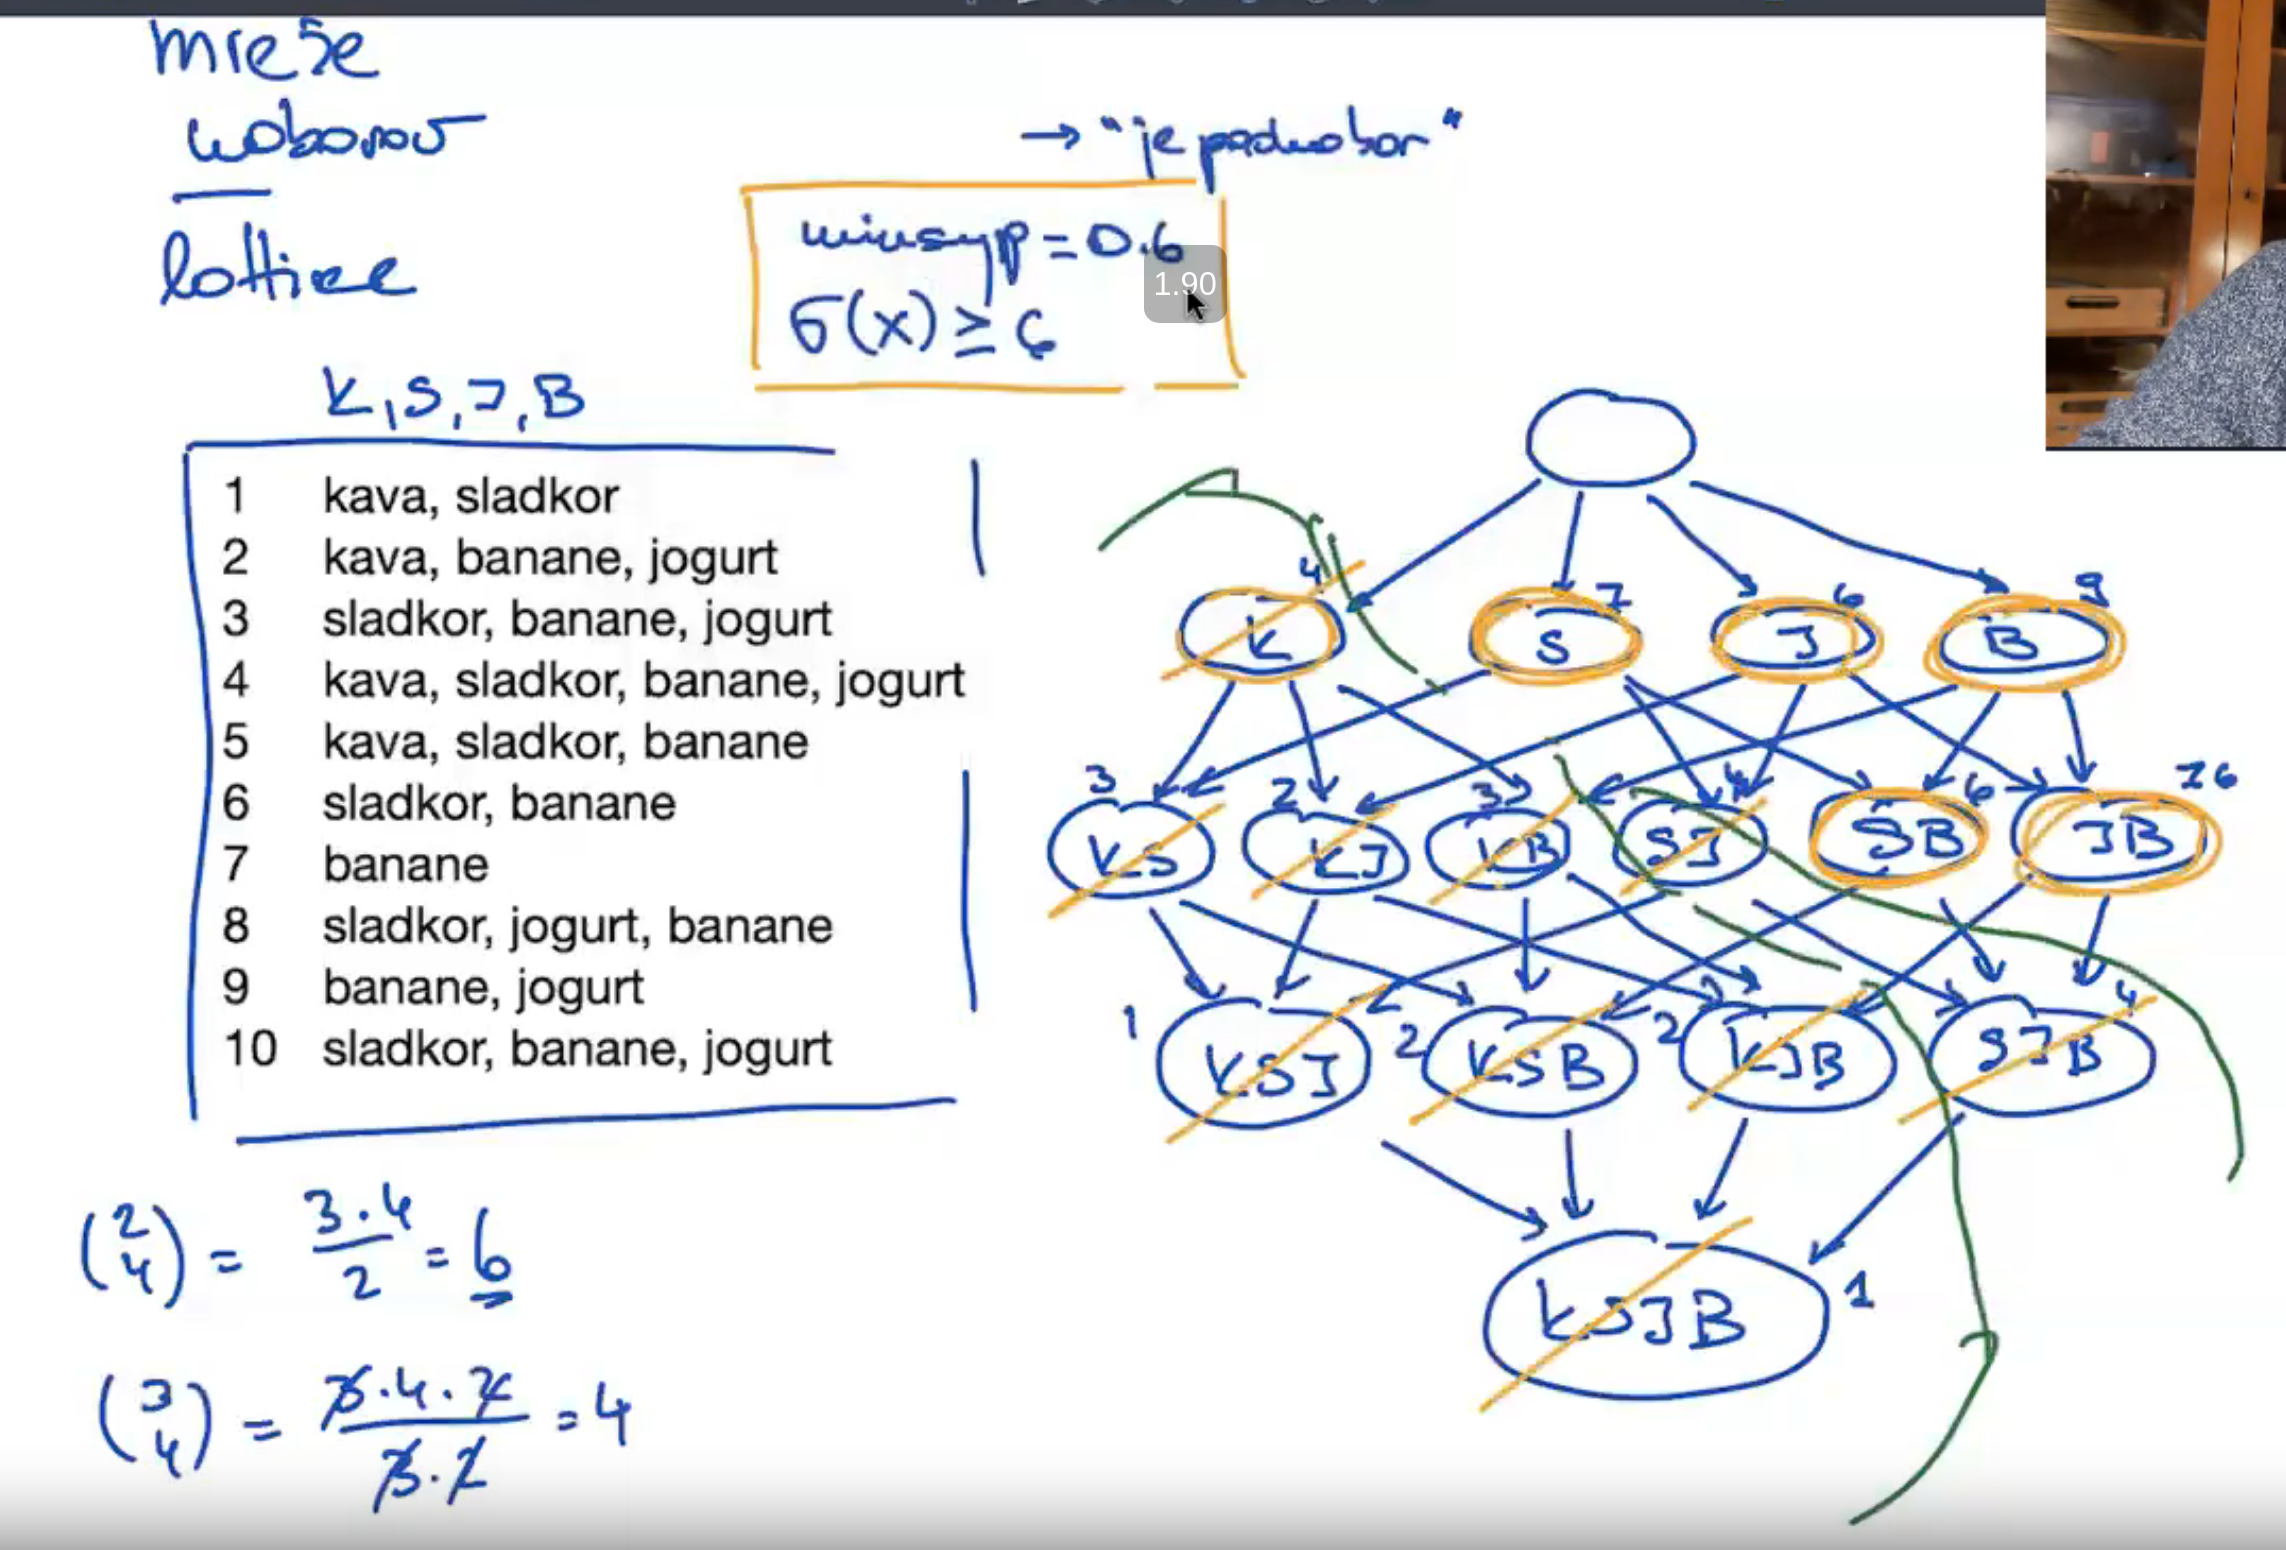 mreže
naborov
lattice
→ "je podnabor"
minsup = 0.6
σ(x) ≥ 6
1.90
K, S, J, B
1 kava, sladkor
2 kava, banane, jogurt
3 sladkor, banane, jogurt
4 kava, sladkor, banane, jogurt
5 kava, sladkor, banane
6 sladkor, banane
7 banane
8 sladkor, jogurt, banane
9 banane, jogurt
10 sladkor, banane, jogurt
4 7 6 9
K S J B
3 2 3 4 6 6
KS KJ KB SJ SB JB
1 2 2 4
KSJ KSB KJB SJB
KSJB 1
(2 4) = 3·4 / 2 = 6
(3 4) = 3·4·2 / 3·2 = 4